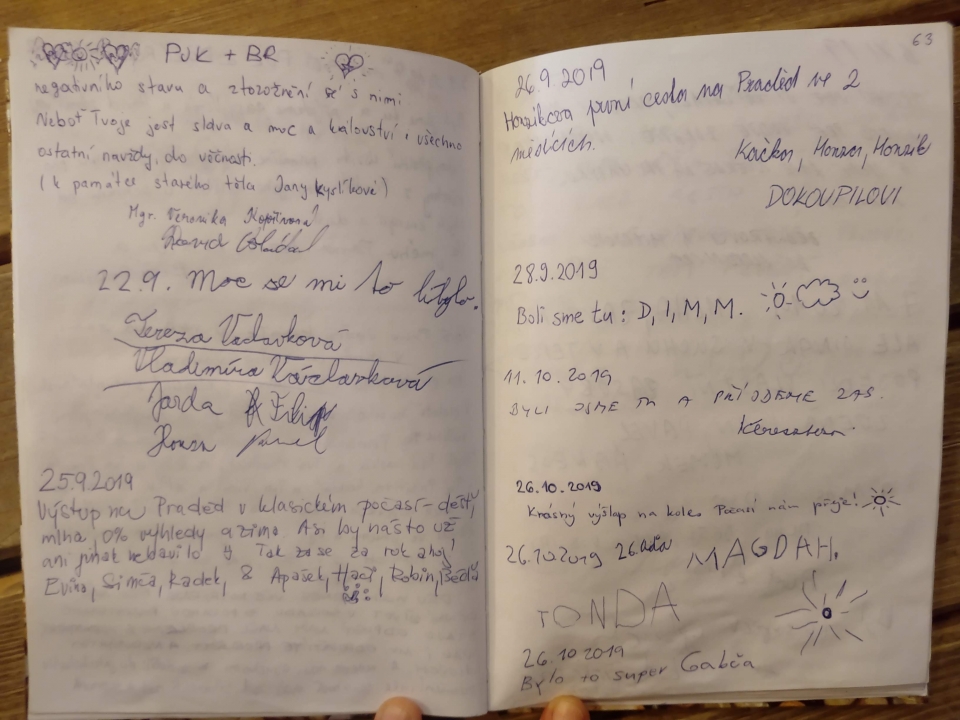 PUK + BR
negativního stavu a ztotožnění se s nimi
Neboť Tvoje jest sláva a moc a království i všechno
ostatní navždy, do věčnosti.
(k památce starého těla Jany Kyslíkové)
Mgr. Veronika Kopřivová
David
22.9. Moc se mi to líbylo.
Tereza Václavková
Vladimíra Václavková
Jarda Filip
Honza
25.9.2019
Výstup na Praděd v klasickém počasí - déšť,
mlha, 0% výhledy a zima. Asi by nás to už
ani jinak nebavilo Tak zase za rok ahoj!
Evika, Simča, Radek, & Apašek, Hači, Robin, Běda
63
26.9.2019
Honzíkova první cesta na Praděd ve 2
měsících.
Kačka, Honza, Honzík
DOKOUPILOVI
28.9.2019
Boli sme tu: D, I, M, M.
11.10.2019
BYLI JSME TU A PŘIJDEME ZAS.
26.10.2019
Krásný výšlap na kole. Počasí nám přeje!
26.10.2019 MAGDAH.
TONDA
26.10 2019
Bylo to super Gabča